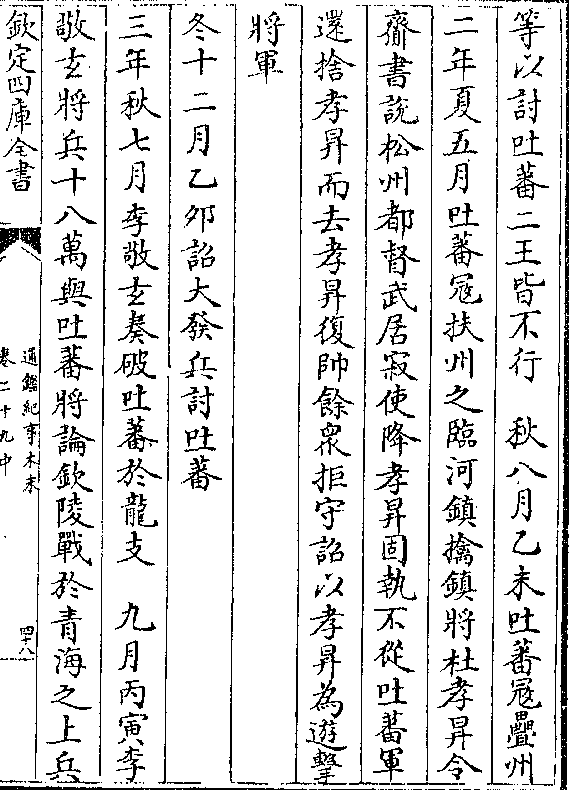 等以討吐蕃二王皆不行　秋八月乙未吐蕃冦疊州
二年夏五月吐蕃冦扶州之臨河鎮擒鎮將杜孝昇令
齎書說松州都督武居寂使降孝昇固執不從吐蕃軍
還捨孝昇而去孝昇復帥餘衆拒守詔以孝昇為遊擊
將軍
冬十二月乙夘詔大發兵討吐蕃
三年秋七月李敬玄奏破吐蕃於龍支　九月丙寅李
敬玄將兵十八萬與吐蕃將論欽陵戰於青海之上兵
欽定四庫全書
通鑑紀事本末
卷二十九中
四十八